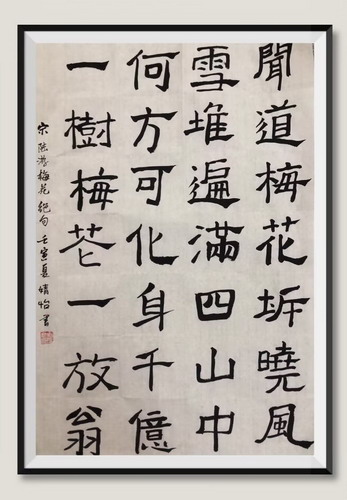 聞道梅花坼曉風
雪堆遍滿四山中
何方可化身千億
一樹梅花一放翁
宋 陸游梅花絕句 壬寅夏 書